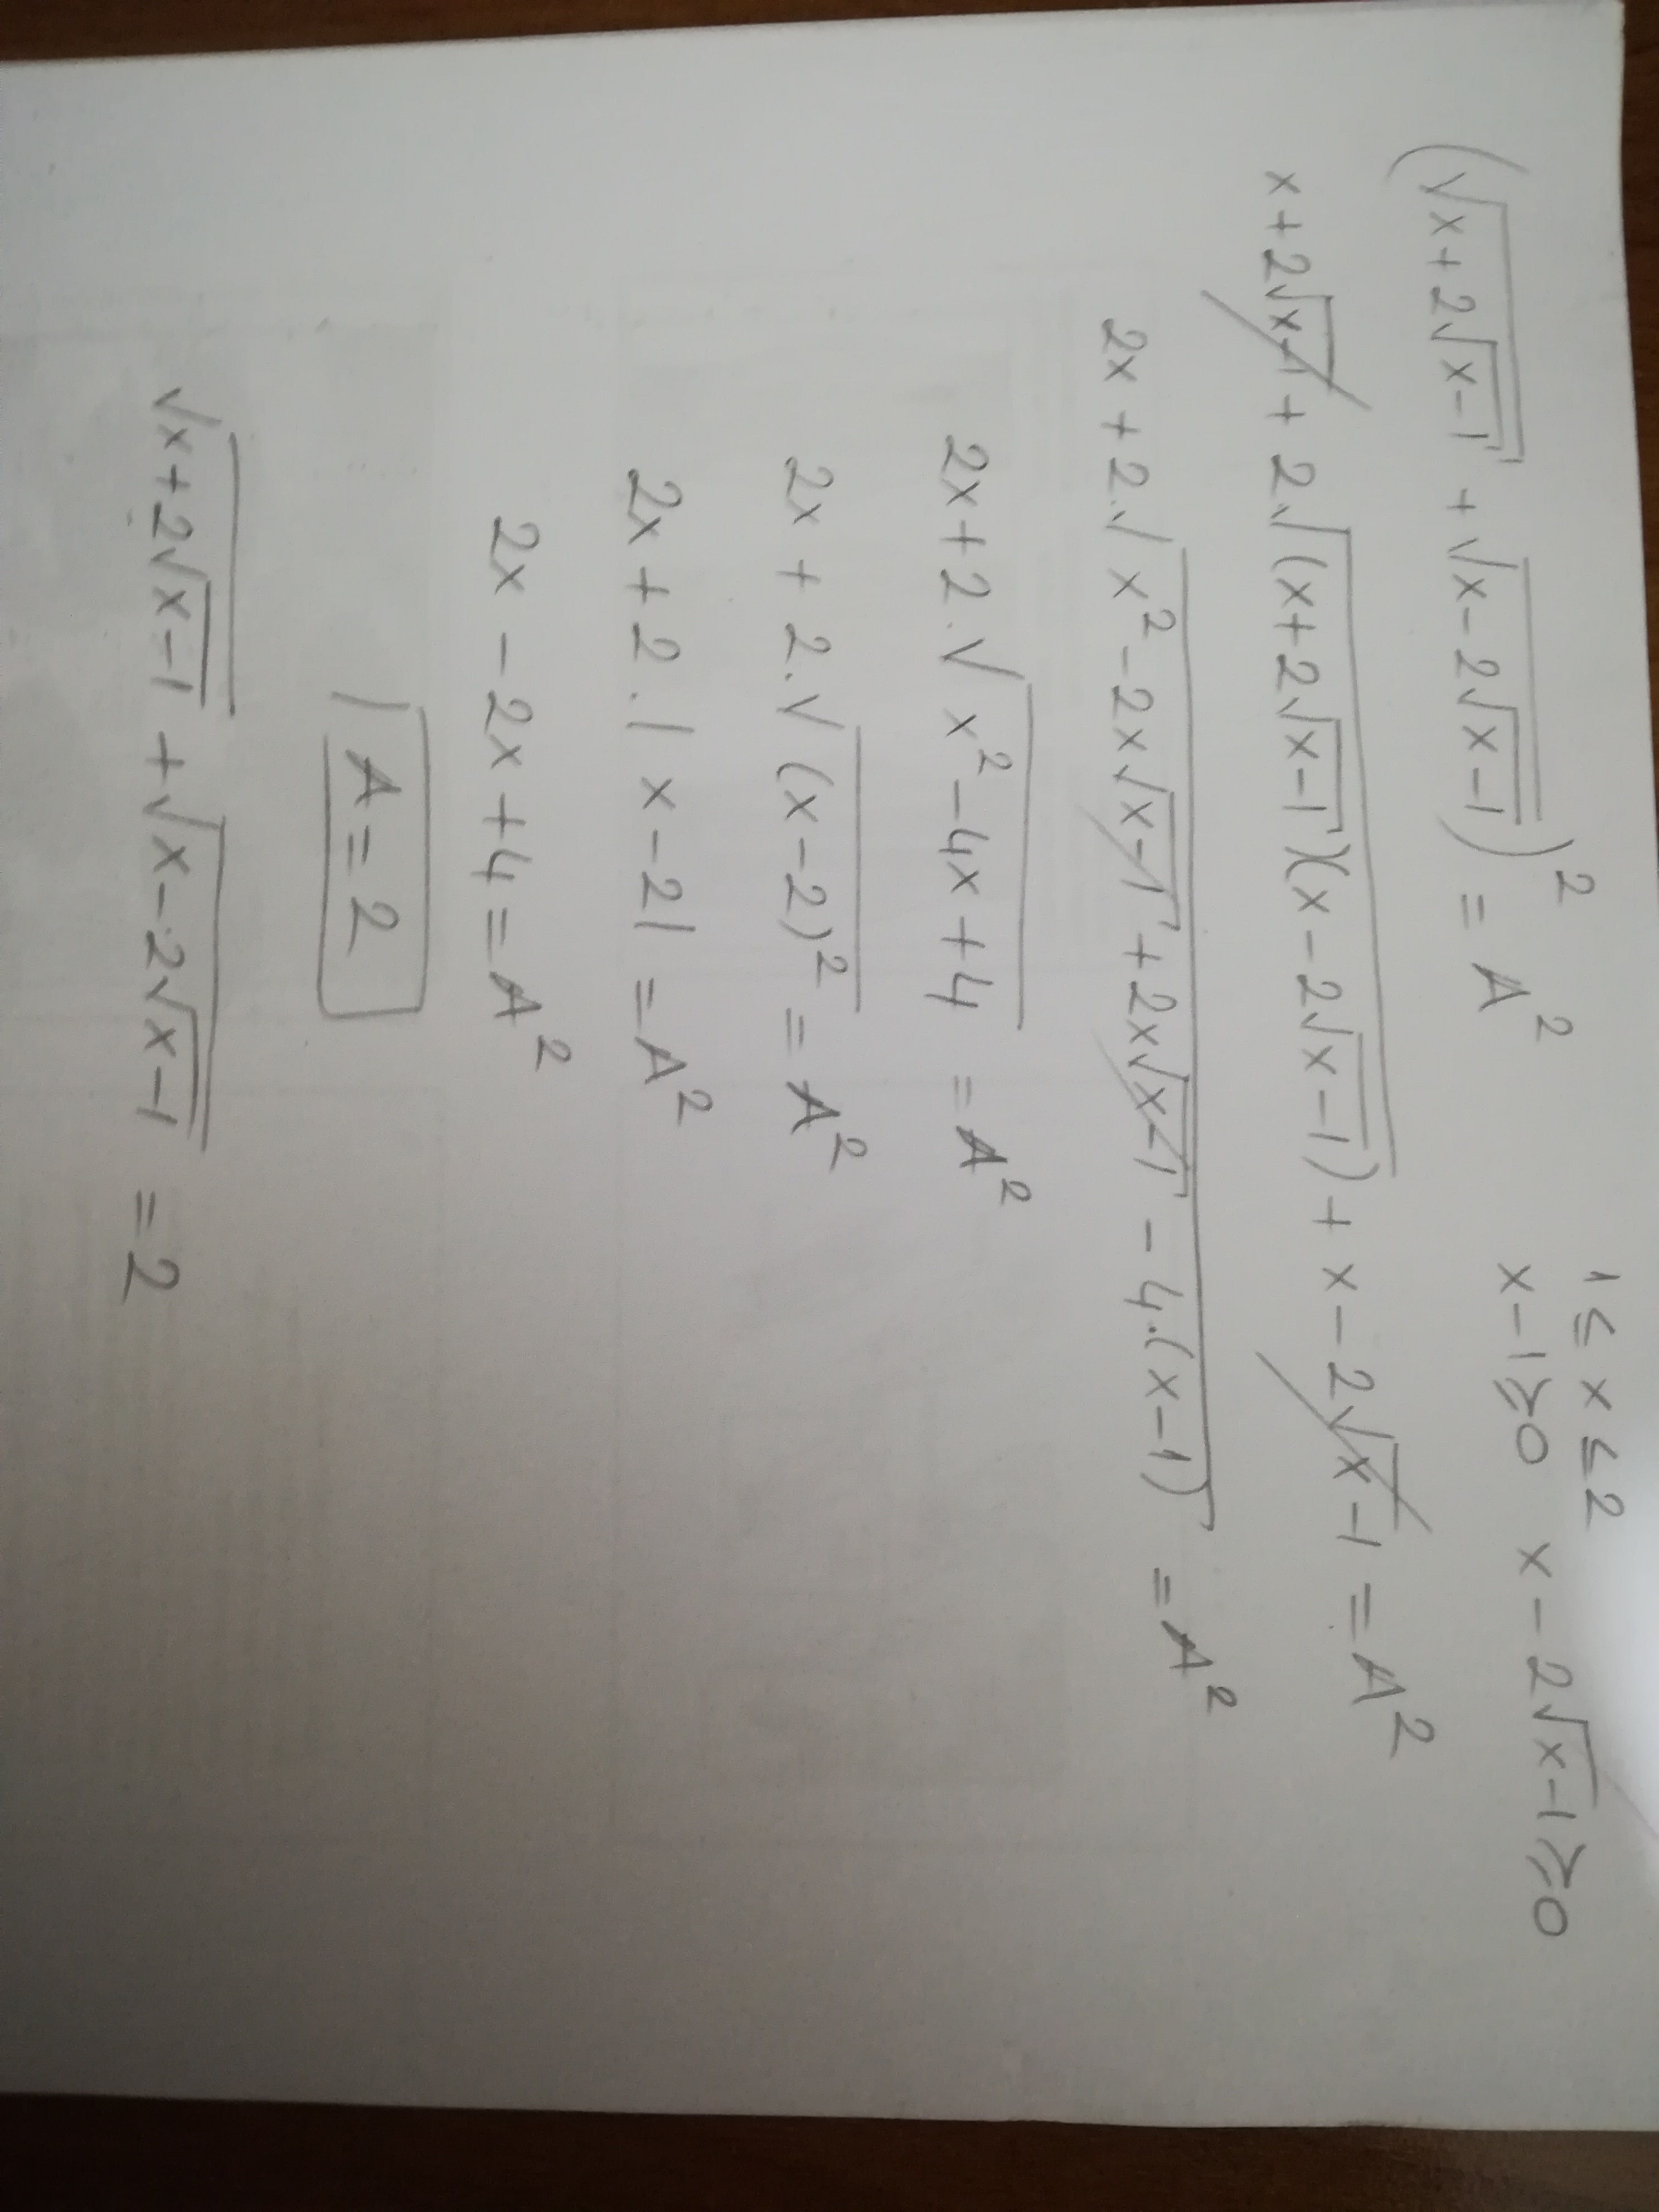 1 ≤ x ≤ 2
(√(x+2√(x-1)) + √(x-2√(x-1)))² = A² x-1≥0 x-2√(x-1)≥0
x+2√(x-1) + 2.√((x+2√(x-1))(x-2√(x-1))) + x-2√(x-1) = A²
2x + 2.√(x²-2x√(x-1) + 2x√(x-1) - 4.(x-1)) = A²
2x+2.√(x²-4x+4) = A²
2x + 2.√((x-2)²) = A²
2x + 2.|x-2| = A²
2x - 2x+4 = A²
A = 2
√(x+2√(x-1)) + √(x-2√(x-1)) = 2